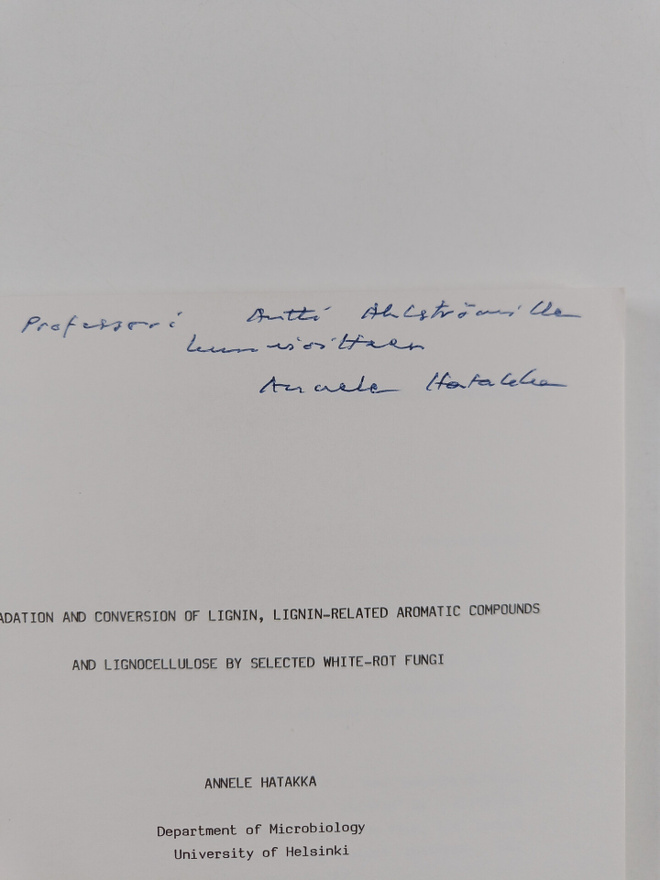 Professori Antti Ahlströmille
kunnioittaen
Annele Hatakka
ADATION AND CONVERSION OF LIGNIN, LIGNIN-RELATED AROMATIC COMPOUNDS
AND LIGNOCELLULOSE BY SELECTED WHITE-ROT FUNGI
ANNELE HATAKKA
Department of Microbiology
University of Helsinki